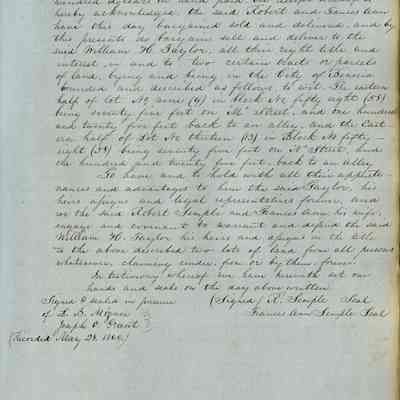 hundred dollars in hand paid the receipt whereof is
hereby acknowledged the said Robert and Frances Ann
have this day bargained sold and delivered and by
this presents do bargain sell and deliver to the
said William H. Taylor, all their right title and
interest in and to two certain tracts or parcels
of land, lying and being in the City of Benicia
bounded and described as follows to wit. The eastern
half of Lot No (6) in Block No fifty eight (58)
being seventy five feet on M. Street, and one hundred
and twenty five feet back to an alley, and the East
ern half of Lot No thirteen (13) in Block No fifty
eight (58) being seventy five feet on N Street, and
one hundred and twenty five feet back to an alley
To have and to hold with all their appurte-
nances and advantages to him the said Taylor, his
heirs assigns and legal representatives forever, and
we the said Robert Semple and Frances Ann his wife,
engage and covenant to warrant and defend the said
William H. Taylor his heirs and assigns in the title
to the above described two lots of land from all persons
whatsoever, claiming under, from or by them forever.
In testimony whereof we have hereunto set our
hands and seals on the day above written
Signed & sealed in presence (Signed) R. Semple Seal
of L. B. Mizner Frances Ann Semple Seal
Joseph O. Grant
(Recorded May 28.